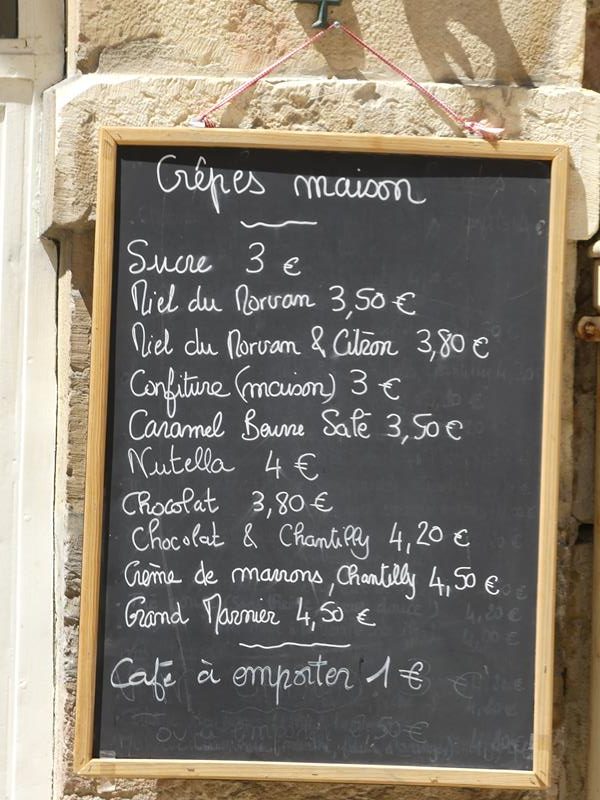 Crêpes maison
Sucre 3 €
Miel du Morvan 3,50 €
Miel du Morvan & Citron 3,80 €
Confiture (maison) 3 €
Caramel Beurre Salé 3,50 €
Nutella 4 €
Chocolat 3,80 €
Chocolat & Chantilly 4,20 €
Crème de marrons, Chantilly 4,50 €
Grand Marnier 4,50 €
Café à emporter 1 €